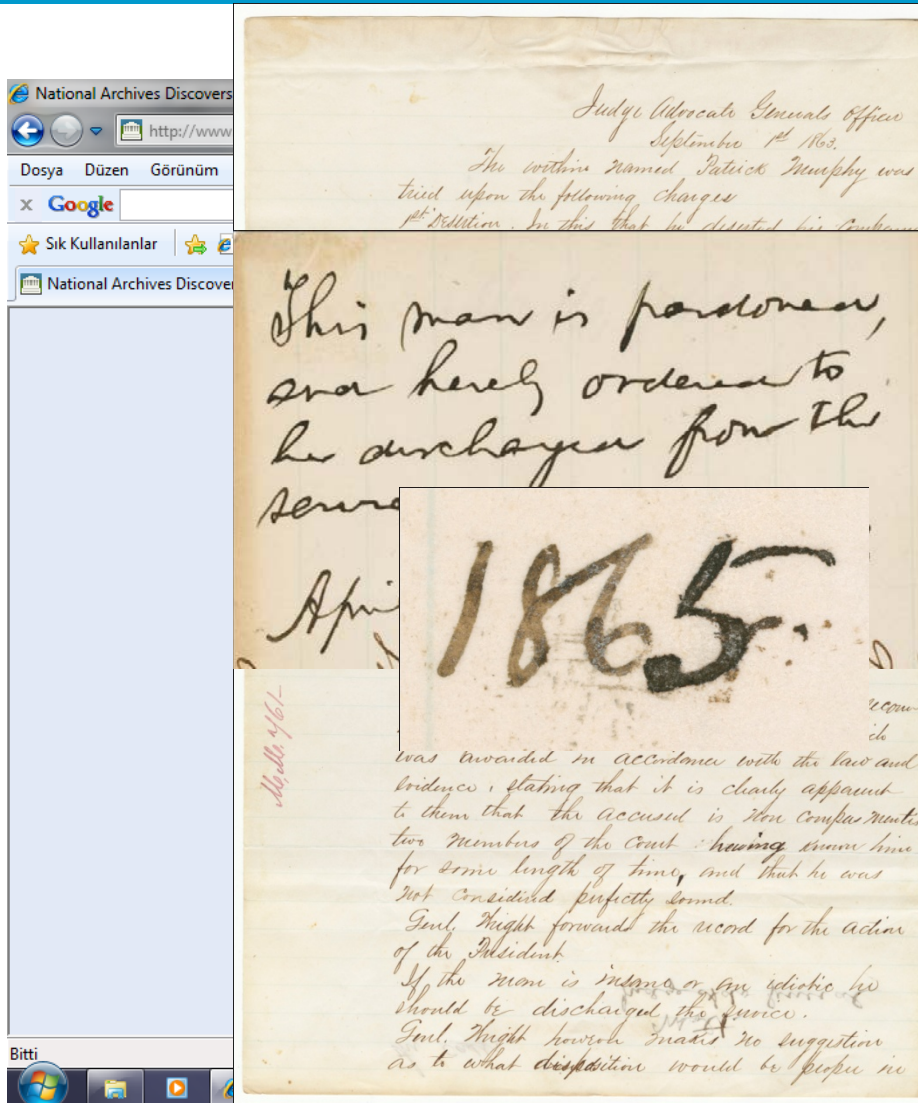 National Archives Discovers
http://www
Dosya Düzen Görünüm
x Google
Sık Kullanılanlar
National Archives Discover
Bitti
Judge Advocate Generals Office
September 1st 1863.
The within named Patrick Murphy was
tried upon the following charges
1st Desertion. In this that he deserted his Company
This man is pardoned,
and hereby ordered to
be discharged from the
servi
Apri
1865.
recom-
was awarded in accordance with the law and
evidence, stating that it is clearly apparent
to them that the accused is non compus mentis
two members of the Court having known him
for some length of time, and that he was
not considered perfectly sound.
Genl. Wright forwards the record for the action
of the President.
If the man is insane or an idiotic he
should be discharged the service.
Genl. Wright however makes no suggestion
as to what disposition would be proper in